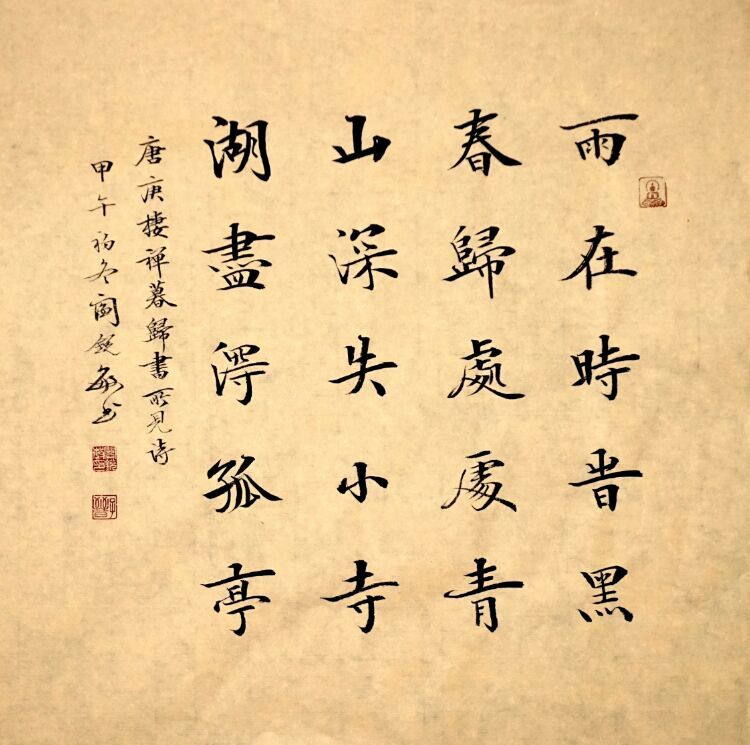 雨在時旹黑
春歸處處青
山深失小寺
湖盡得孤亭
唐庚棲禪暮歸書所見詩
甲午初冬閻銳敏书